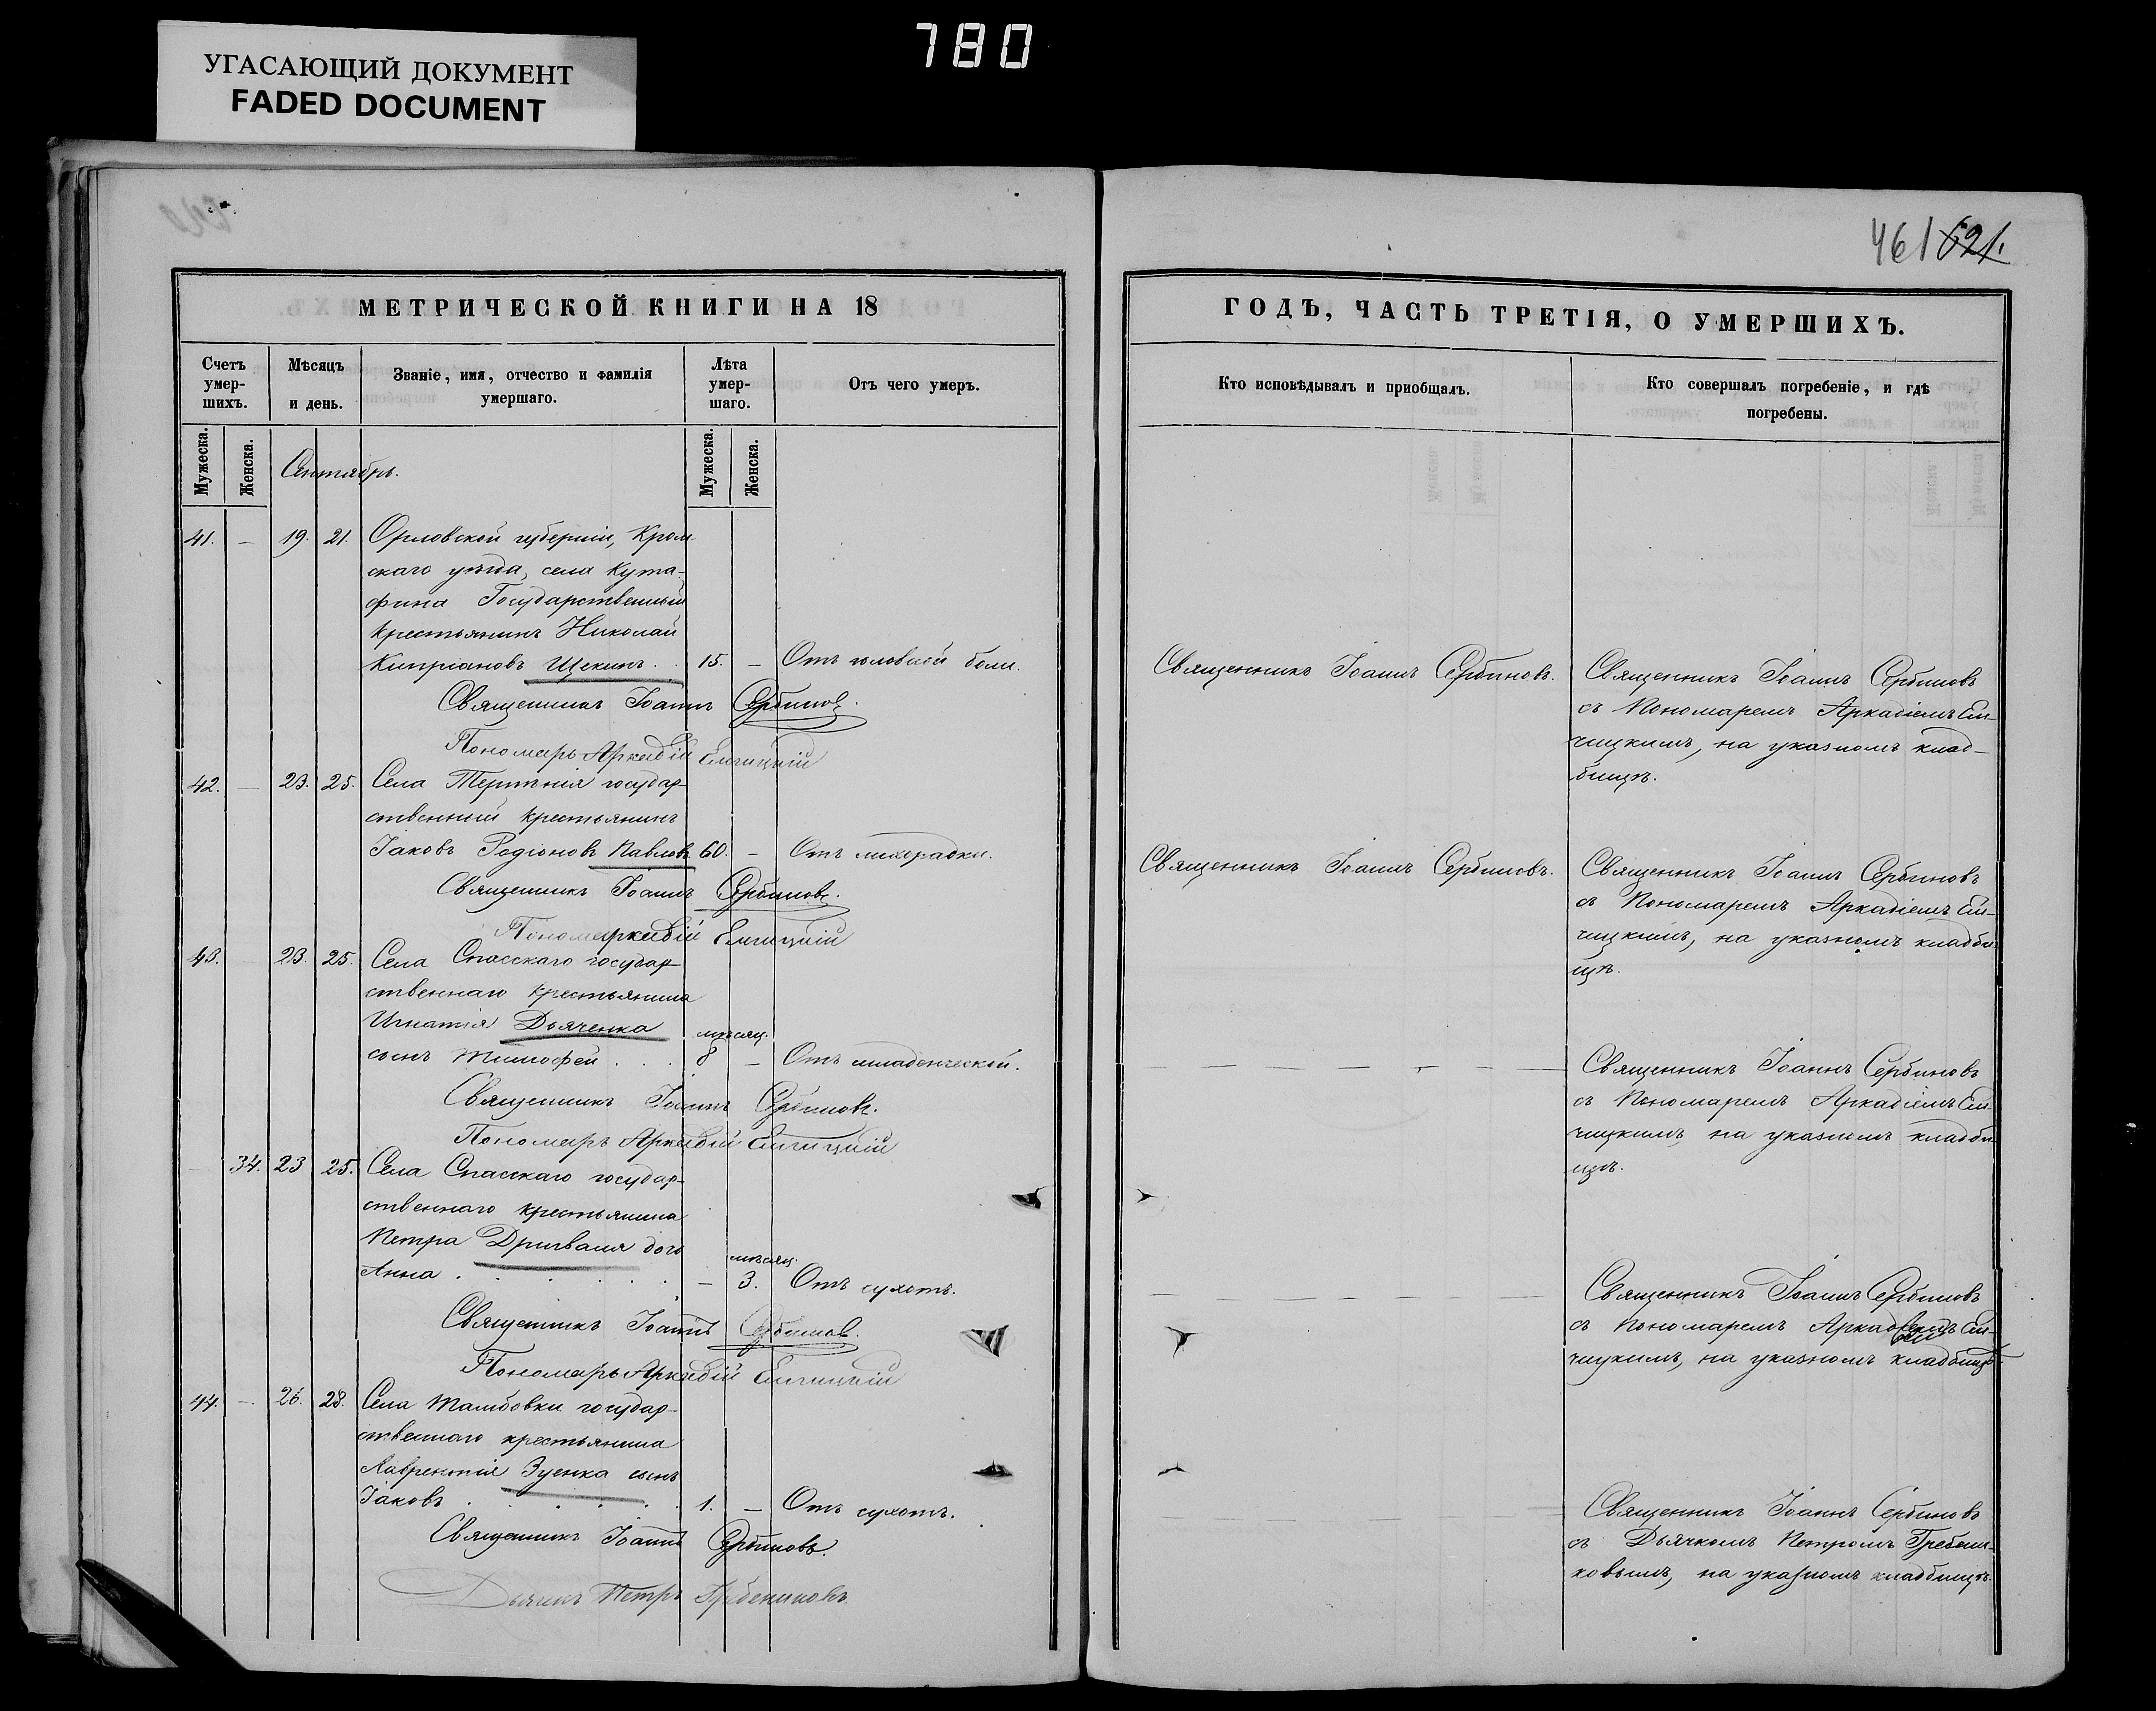 780
УГАСАЮЩИЙ ДОКУМЕНТ
FADED DOCUMENT
461 621.
МЕТРИЧЕСКОЙ КНИГИ НА 18
Счетъ умер-шихъ.
Мѣсяцъ и день.
Званіе, имя, отчество и фамилія умершаго.
Лѣта умер-шаго.
Отъ чего умеръ.
Мужеска. Женска.
Мужеска. Женска.
Сентябрь.
41. – 19. 21. Орловской губерніи, Кром
скаго уѣзда, села Кута-
фина Государственный
крестьянинъ Николай
Кипріановъ Щекинъ . . 15. – Отъ головной боли.
Священникъ Іоаннъ Сербиновъ.
Пономарь Аркадій
42. – 23. 25. Села Терпѣнія государ-
ственный крестьянинъ
Іаковъ Родіоновъ Павловъ 60. – Отъ лихорадки.
Священникъ Іоаннъ Сербиновъ.
43. 23. 25. Села Спасскаго государ
ственнаго крестьянина
Игнатія Дьяченка мѣсяц.
сынъ Тимофей . . . 8 – Отъ младенческой.
Священникъ Іоаннъ Сербиновъ.
Пономарь Аркадій
34. 23 25. Села Спасскаго государ-
ственнаго крестьянина
Петра Дригваля дочь мѣсяц.
Анна . . . . . – 3. Отъ сухотъ.
Священникъ Іоаннъ Сербиновъ.
Пономарь Аркадій
44. – 26. 28. Села Тамбовки государ-
ственнаго крестьянина
Лаврентія Зуенка сынъ
Іаковъ . . . . . 1. – Отъ сухотъ.
Священникъ Іоаннъ Сербиновъ.
Дьячокъ Петръ Гребениковъ
ГОДЪ, ЧАСТЬ ТРЕТІЯ, О УМЕРШИХЪ.
Кто исповѣдывалъ и приобщалъ.
Кто совершалъ погребеніе, и гдѣ
погребены.
Священникъ Іоаннъ Сербиновъ.
Священникъ Іоаннъ Сербиновъ
съ Пономаремъ Аркадіемъ Ем-
чицкимъ, на указномъ клад-
бищѣ.
Священникъ Іоаннъ Сербиновъ.
Священникъ Іоаннъ Сербиновъ
съ Пономаремъ Аркадіемъ Ем-
чицкимъ, на указномъ кладби-
щѣ.
Священникъ Іоаннъ Сербиновъ
съ Пономаремъ Аркадіемъ Ем-
чицкимъ, на указномъ кладби
щѣ.
Священникъ Іоаннъ Сербиновъ
съ Пономаремъ Ем-
чицкимъ, на указномъ кладбищѣ
Священникъ Іоаннъ Сербиновъ
съ Дьячкомъ Петромъ Гребени-
ковымъ, на указномъ кладбищѣ.